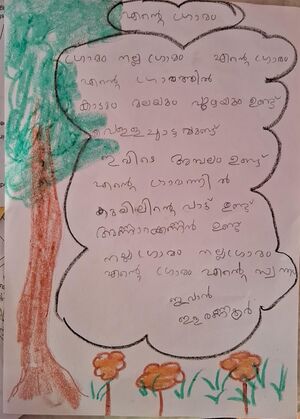 എന്റെ ഗ്രാമം
ഗ്രാമം നല്ല ഗ്രാമം എന്റെ ഗ്രാമം
എന്റെ ഗ്രാമത്തിൽ
കാടും മലയും പുഴയും ഉണ്ട്
വെള്ളച്ചാട്ടമുണ്ട്
ഇവിടെ അമ്പലം ഉണ്ട്
എന്റെ ഗ്രാമത്തിൽ
കുയിലിന്റെ പാട്ട് ഉണ്ട്
അണ്ണാറക്കണ്ണൻ ഉണ്ട്
നല്ല ഗ്രാമം നല്ലഗ്രാമം
എന്റെ ഗ്രാമം എന്റെ
ഇവാൻ